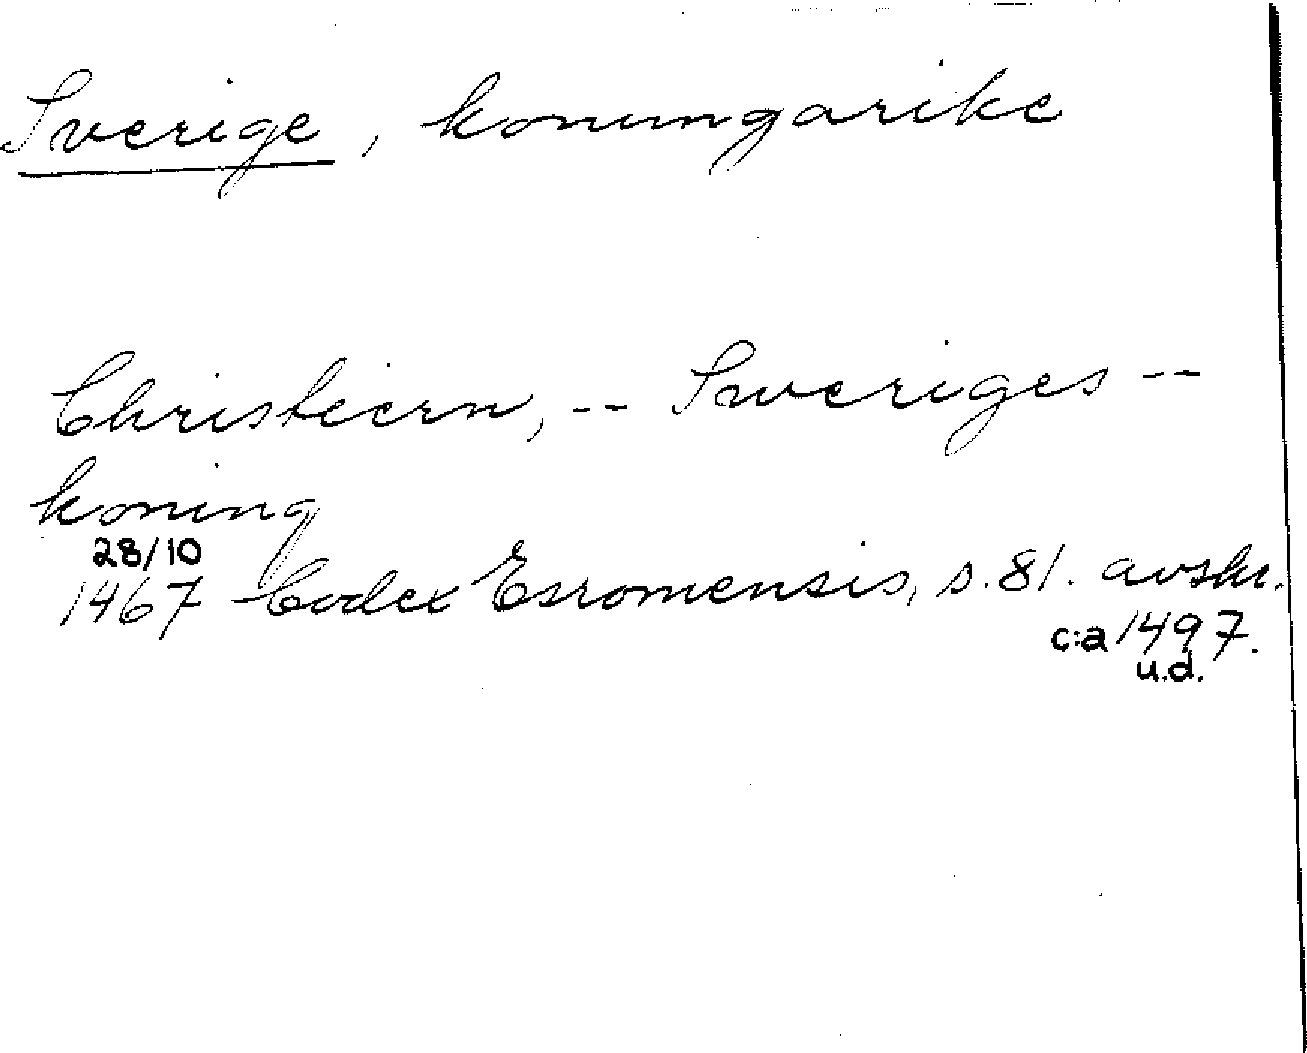 Sverige, konungarike
Christiern, -- Sweriges --
koning
28/10
1467 Codex Esromensis, s. 81. avskr.
c:a 1497.
u.d.